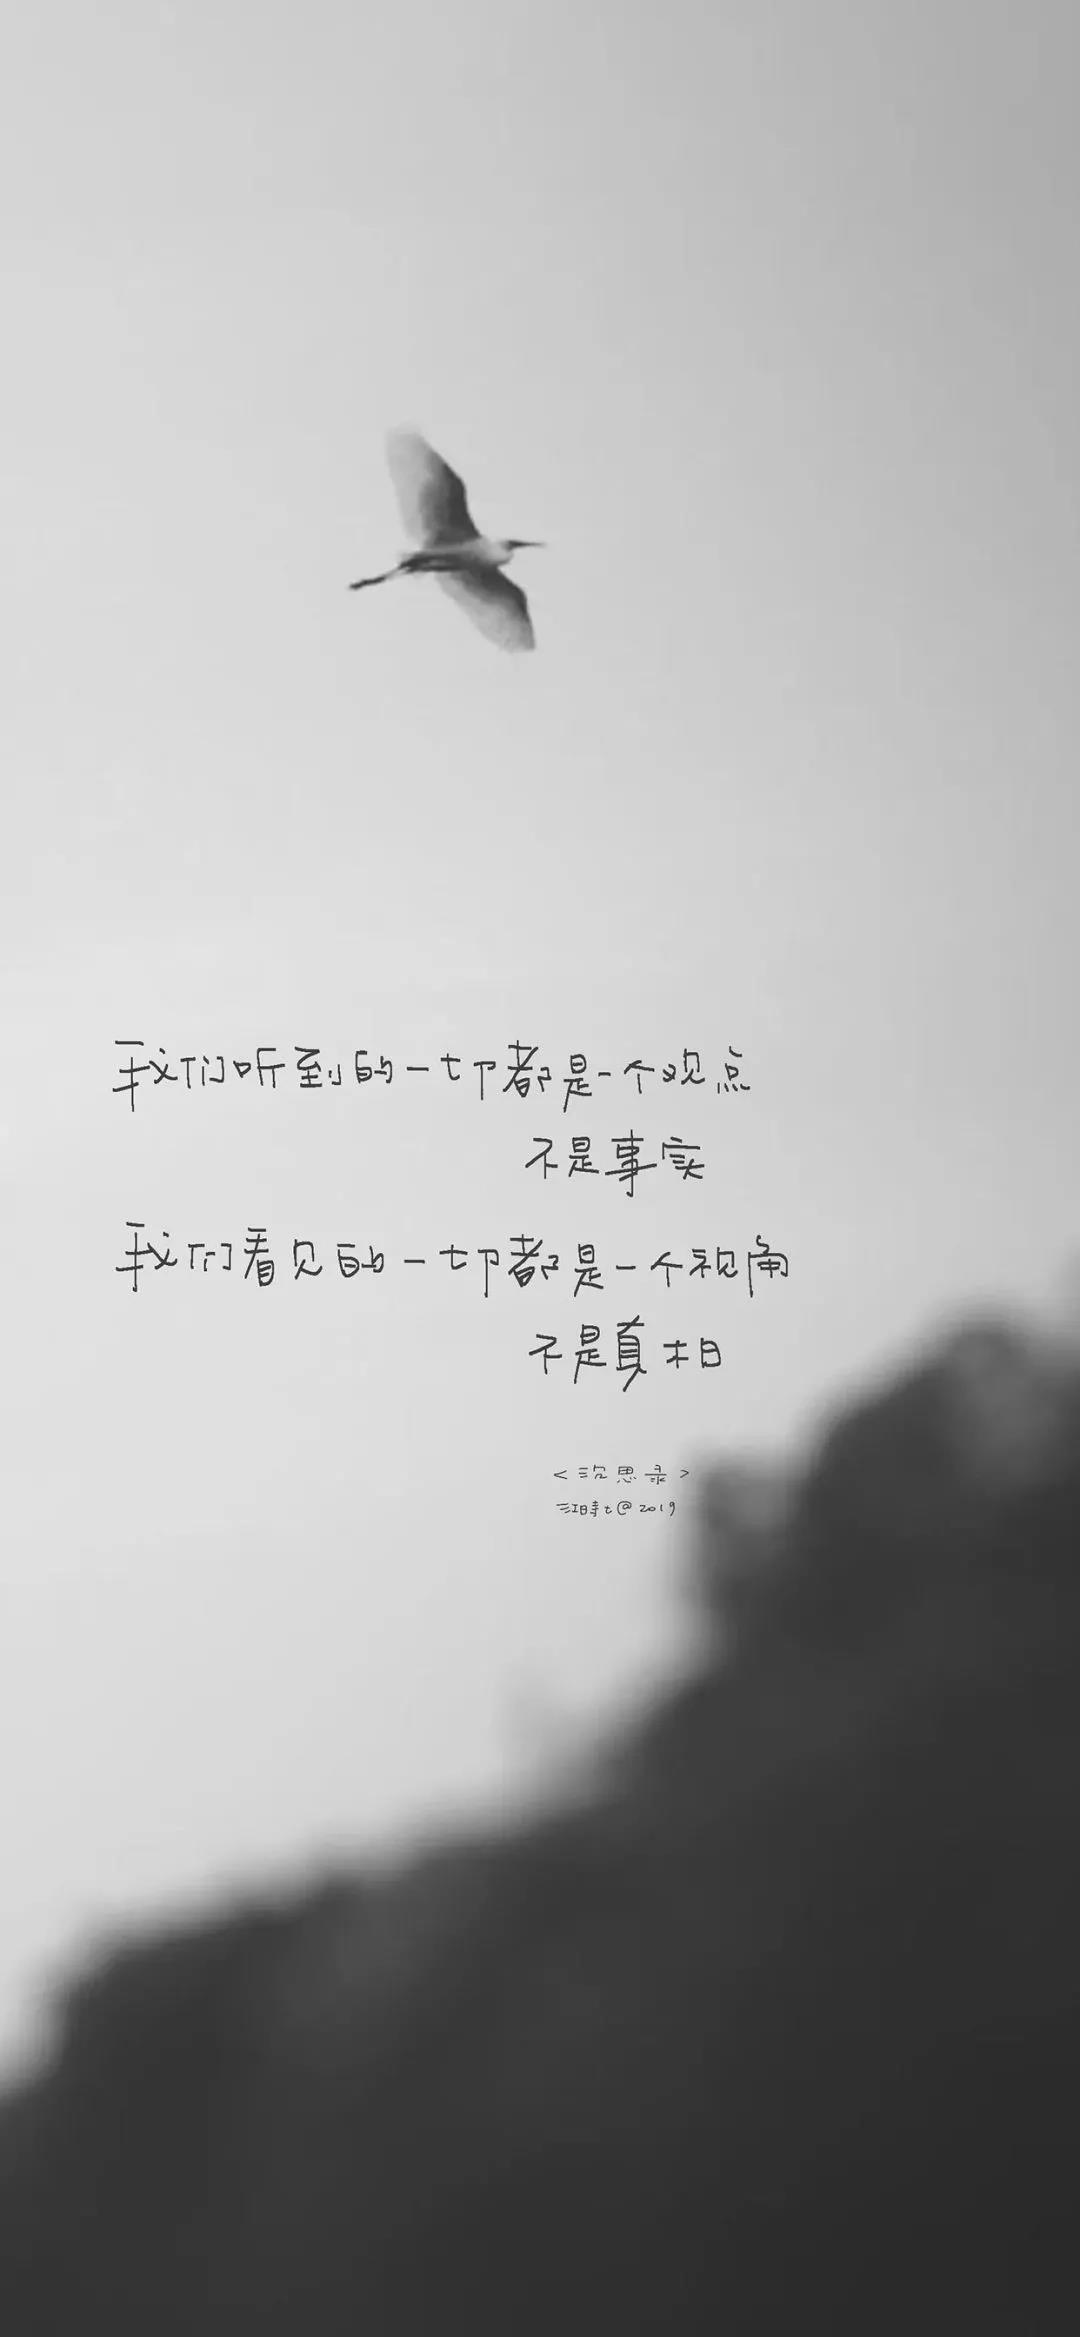 我们听到的一切都是一个观点
不是事实
我们看见的一切都是一个视角
不是真相
<沉思录>
江時七@2019